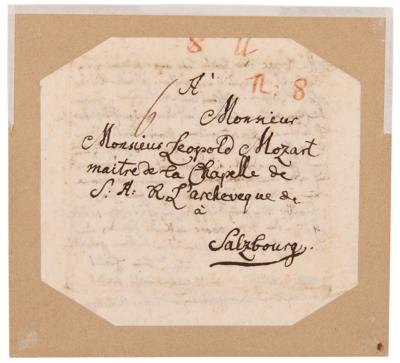 8 11
n: 8
A'
6
Monsieur
Monsieur Leopold Mozart
maitre de la Chapelle de
S: A: R L'archeveque de
à
Salzbourg.